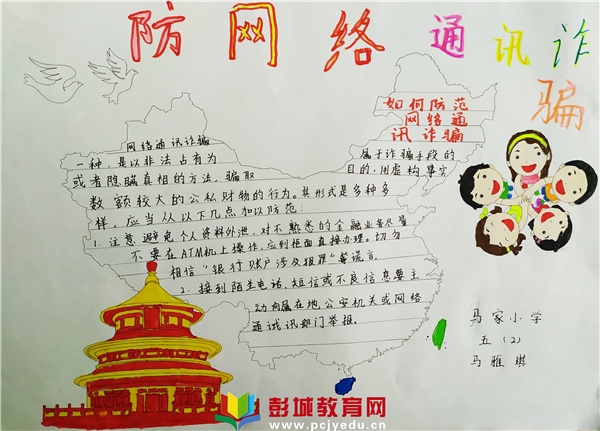 防网络通讯诈骗
如何防范
网络通
讯诈骗
网络通讯诈骗
属于诈骗手段的
一种,是以非法占有为
目的,用虚构事实
或者隐瞒真相的方法,骗取
数额较大的公私财物的行为。其形式是多种多
样,应当从以下几点加以防范:
1.注意避免个人资料外泄,对不熟悉的金融业务尽量
不要在ATM机上操作,应到柜面直接办理。切勿
相信“银行账户涉及
等谎言。
2.接到陌生电话、短信或不良信息要主
动向属在地公安机关或网络
通或讯部门举报。
马家小学
五(2)
马雅琪
彭城教育网
www.pcjyedu.cn